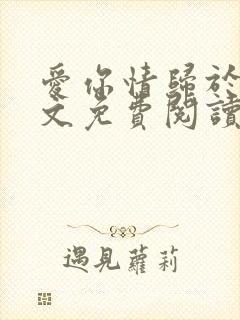 愛你情歸於
文免費閱讀
遇見蘿莉